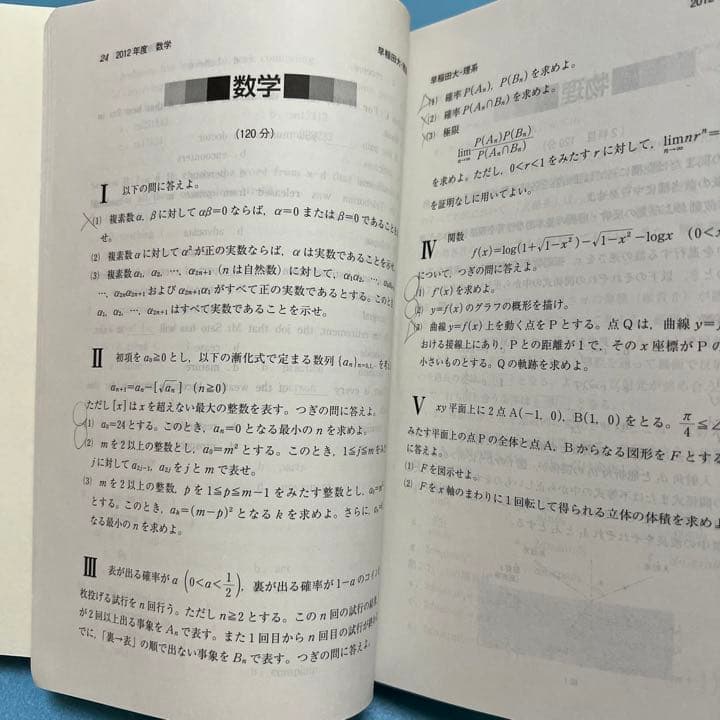 24 2012年度 数学
早稲田大・理
数学
(120分)
I 以下の問に答えよ。
(1) 複素数α, βに対してαβ=0ならば, α=0またはβ=0であること
せ。
(2) 複素数αに対してα²が正の実数ならば, αは実数であることを示せ
(3) 複素数α₁, α₂, …, α₂ₙ₊₁ (nは自然数) に対して, α₁α₂,
…, α₂ₙα₂ₙ₊₁およびα₂ₙ₊₁α₁がすべて正の実数であるとする。このと
α₁, α₂, …, α₂ₙ₊₁はすべて実数であることを示せ。
II 初項をa₀≧0とし, 以下の漸化式で定まる数列 {aₙ}ₙ₌₀,₁,…
aₙ₊₁=aₙ−[√aₙ] (n≧0)
ただし[x]はxを超えない最大の整数を表す。つぎの問に答えよ。
(1) a₀=24とする。このとき, aₙ=0となる最小のnを求めよ。
(2) mを2以上の整数とし, a₀=m²とする。このとき, 1≦j≦mを
jに対してa₂ⱼ₋₁, a₂ⱼをjとmで表せ。
(3) mを2以上の整数, pを1≦p≦m−1をみたす整数とし,
とする。このとき, aₖ=(m−p)²となるkを求めよ。さらに,
なる最小のnを求めよ。
III 表が出る確率がa (0<a<1/2), 裏が出る確率が1−aのコイン
枚投げる試行をn回行う。ただしn≧2とする。このn回の試行の結果,
が2回以上出る事象をAₙで表す。また1回目からn回目の試行
でに,「裏→表」の順で出ない事象をBₙで表す。つぎの問に答えよ。
2012
早稲田大・理系
(1) 確率P(Aₙ), P(Bₙ)を求めよ。
(2) 確率P(Aₙ∩Bₙ)を求めよ。
(3) 極限
lim n→∞ P(Aₙ)P(Bₙ)/P(Aₙ∩Bₙ)
を求めよ。ただし, 0<r<1をみたすrに対して, lim n→∞ nrⁿ=
を証明なしに用いてよい。
IV 関数
f(x)=log(1+√1−x²)−√1−x²−logx (0<x
について, つぎの問に答えよ。
(1) f′(x)を求めよ。
(2) y=f(x)のグラフの概形を描け。
(3) 曲線y=f(x)上を動く点をPとする。点Qは, 曲線y=f
おける接線上にあり, Pとの距離が1で, そのx座標がPの
小さいものとする。Qの軌跡を求めよ。
V xy平面上に2点A(−1, 0), B(1, 0)をとる。π/4≦∠
みたす平面上の点Pの全体と点A, Bからなる図形をFとする
に答えよ。
(1) Fを図示せよ。
(2) Fをx軸のまわりに1回転して得られる立体の体積を求めよ